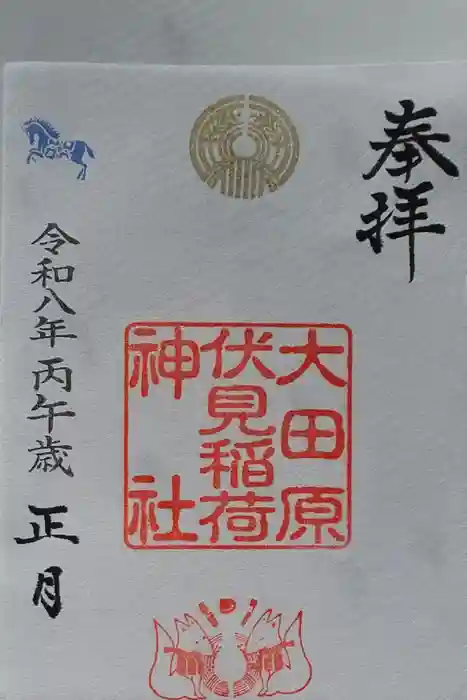 奉拝
大田原
伏見稲荷
神社
令和八年丙午歳
正月